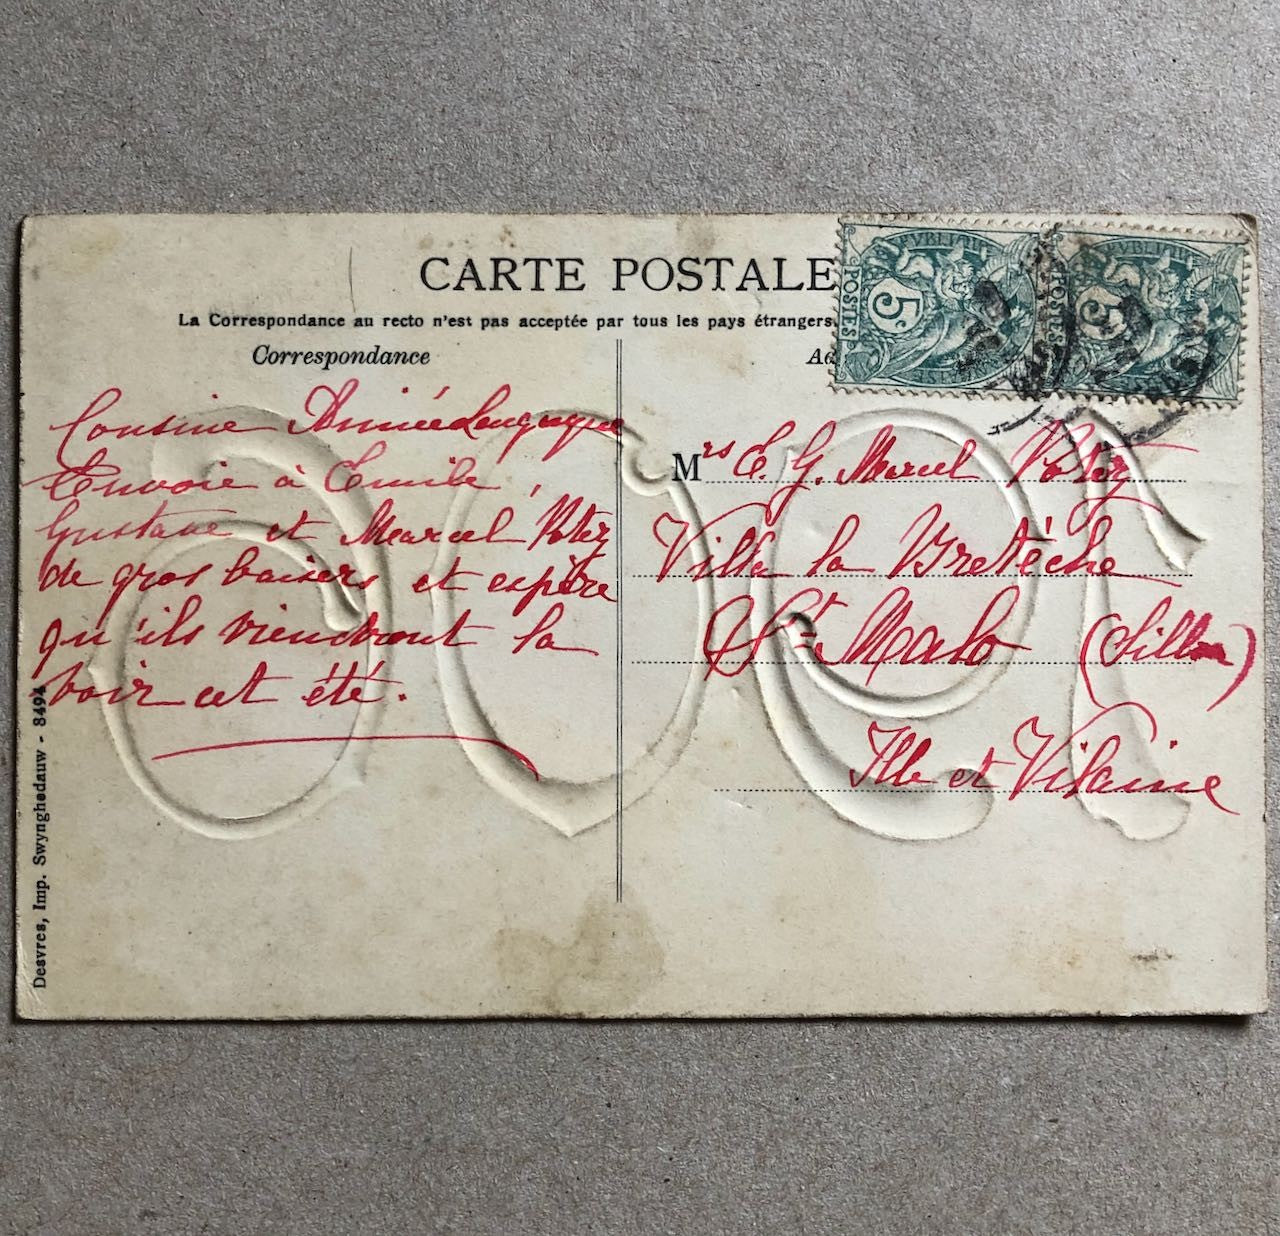 CARTE POSTALE
La Correspondance au recto n'est pas acceptée par tous les pays étrangers.
Correspondance
Cousine Aimée
Envoie à Emile,
Gustave et Marcel Potez
de gros baisers et espère
qu'ils viendront la
voir cet été.
Desvres, Imp. Swynghedauw - 8494
POSTES
5c
POSTES
5c
Mrs E. G. Marcel Potez
Villa la Bretèche
St Malo (Sillon)
Ille et Vilaine